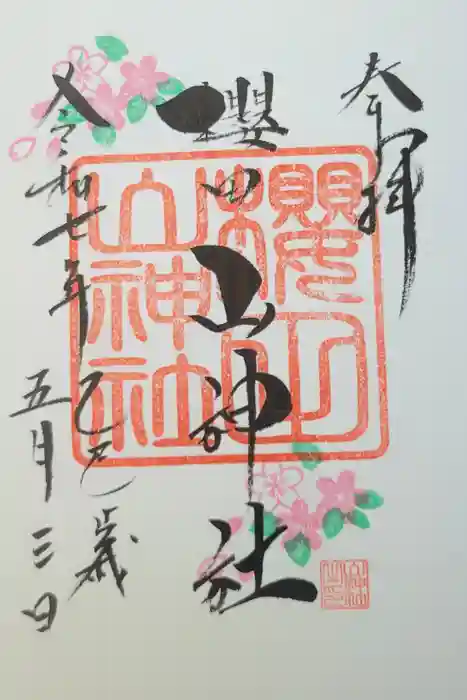 奉拝
櫻田山神社
令和七年乙巳歳
五月三日